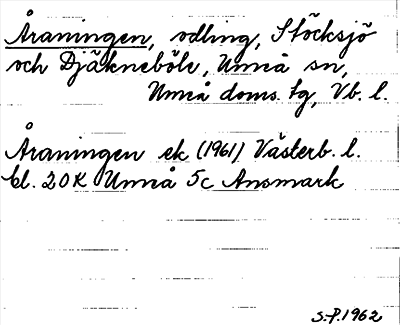 Åraningen, odling, Stöcksjö
och Djäkneböle, Umeå sn,
Umeå doms. tg, Vb. l.
Åraningen ek (1961) Västerb. l.
bl. 20K Umeå 5c Ansmark
S.P. 1962